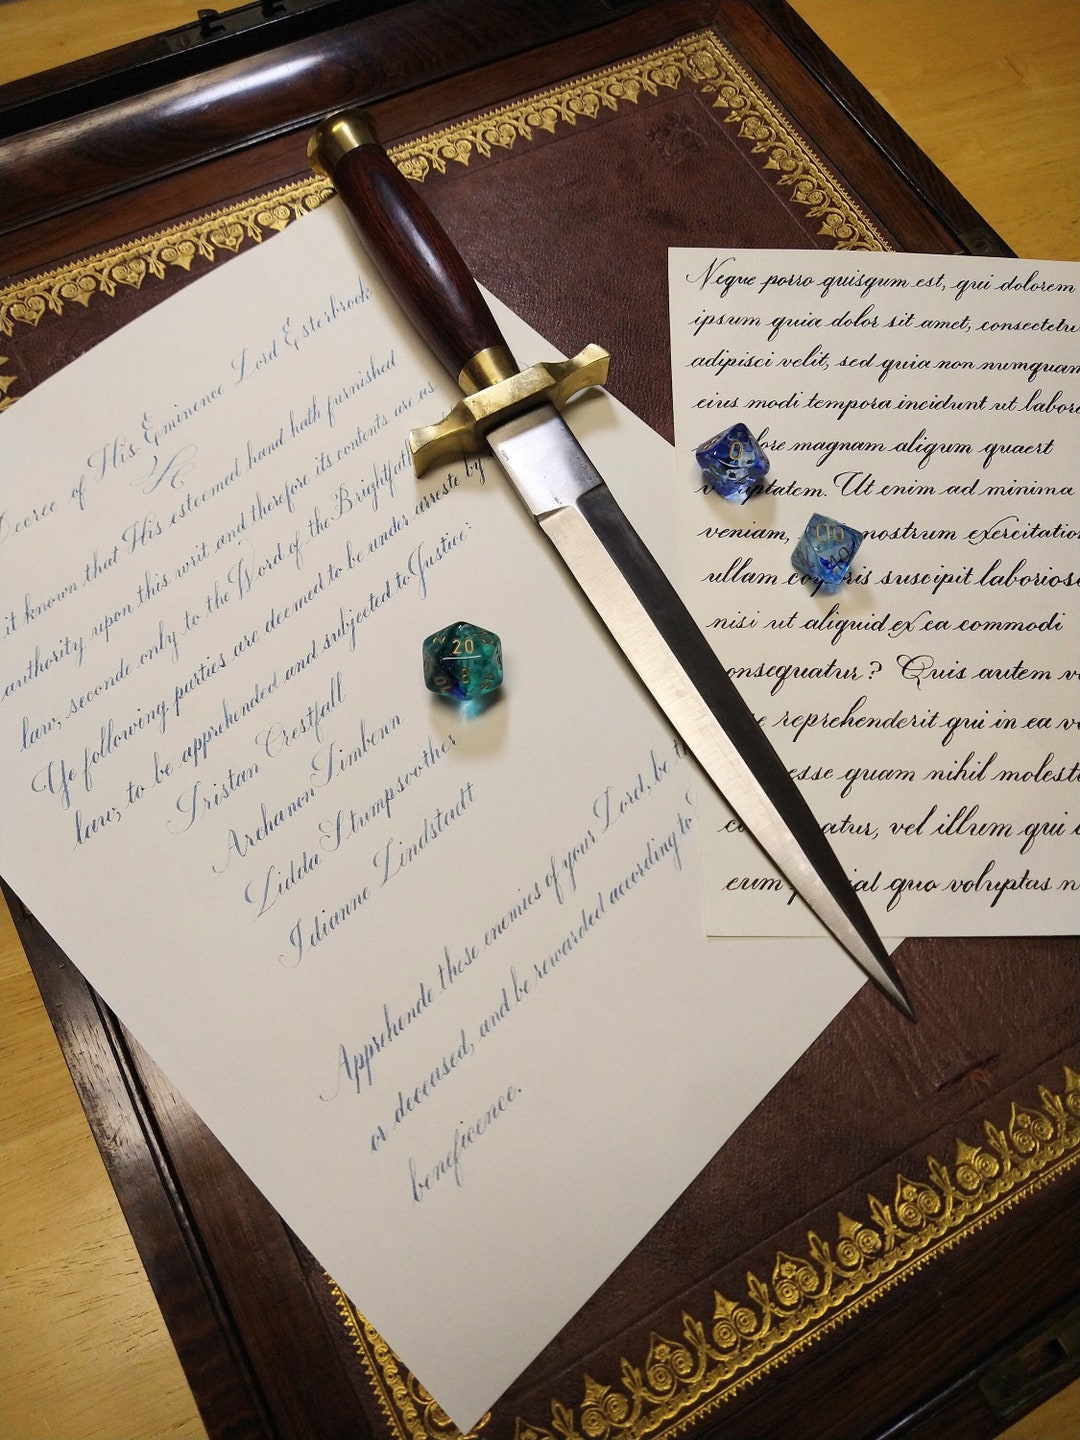 Decree of His Eminence Lord Esterbrook
it known that His esteemed hand hath furnished
authority upon this writ and therefore its contents are as
law, seconde only to the Word of the Brightfath
Ye following parties are deemed to be under arreste by
law, to be apprehended and subjected to Justice:
Tristan Crestfall
Archanon Timbenn
Lidda Stumpsoother
Idianne Lindstadt
Apprehende these enemies of your Lord, be
or deceased, and be rewarded according to
beneficence.
Neque porro quisqum est, qui dolorem
ipsum quia dolor sit amet, consectetu
adipisci velit, sed quia non numquam
eius modi tempora incidunt ut labore
lore magnam aliqum quaert
voluptatem. Ut enim ad minima
veniam, nostrum exercitation
ullam corporis suscipit laborios
nisi ut aliquid ex ea commodi
onsequatur? Quis autem v
reprehenderit qui in ea v
esse quam nihil molest
atur, vel illum qui
eum quo voluptas n
0
00
40
20